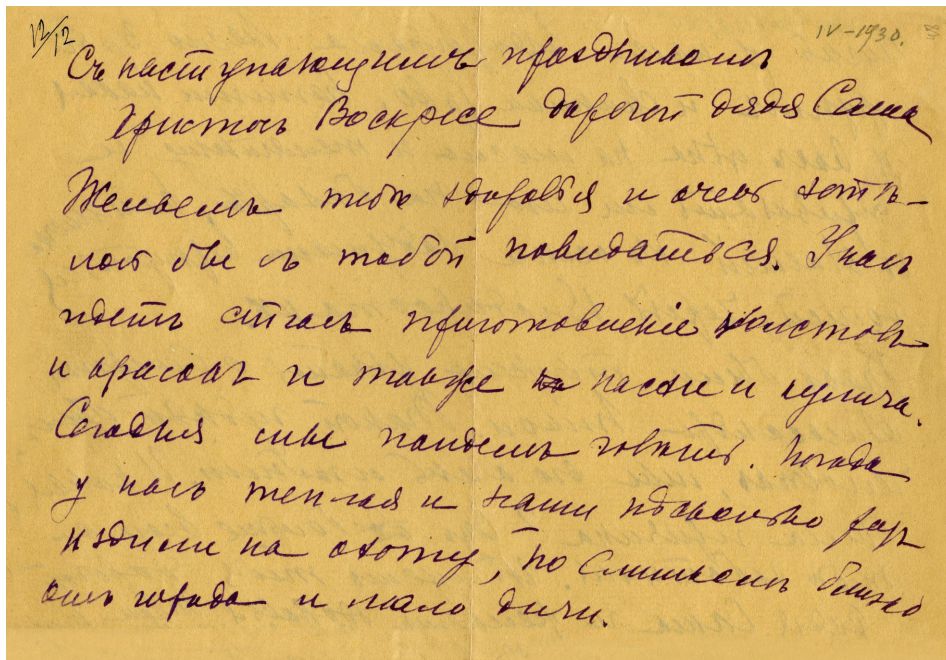 12/12
IV-1930.
Съ наступающимъ праздникомъ
Христосъ Воскресе дорогой дядя Саша
Желаемъ тебѣ здоровья и очень хотѣ-
лось бы съ тобой повидаться. У насъ
идетъ сейчасъ приготовленіе холстовъ
и красокъ и также пасхи и кулича.
Сегодня мы пойдемъ говѣть. Погода
у насъ теплая и наши нѣсколько разъ
ѣздили на охоту, но слишкомъ близко
отъ города и мало дичи.